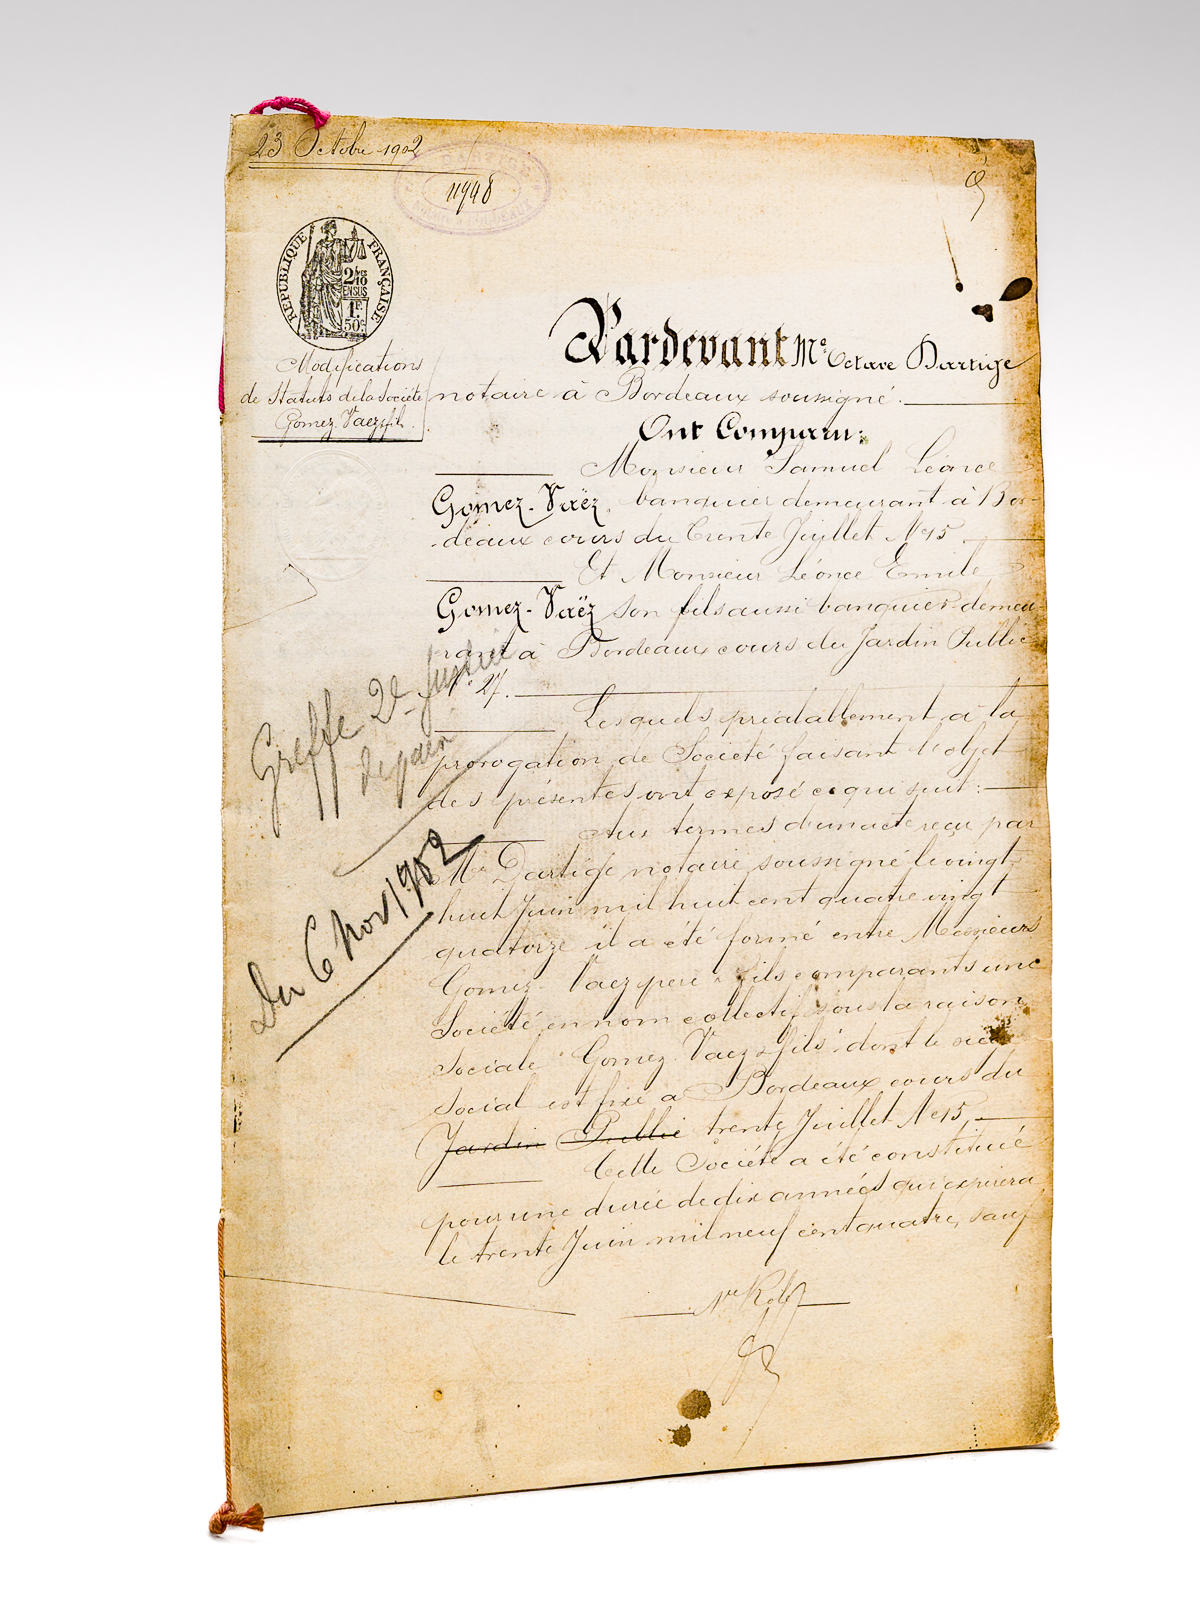 23 Octobre 1902
DARTIGE
BORDEAUX
RÉPUBLIQUE FRANÇAISE
2/10
EN SUS
1F.
50c.
Modifications
de Statuts de la Société
Gomez Vaez & fils.
Pardevant Me Octave Dartige
notaire à Bordeaux soussigné.
Ont Comparu:
Monsieur Samuel Léonce
Gomez-Vaëz, banquier demeurant à Bor-
-deaux cours du Trente Juillet No 15.
Et Monsieur Léonce Emile
Gomez-Vaëz son fils aussi banquier demeu-
rant à Bordeaux cours du Jardin Public
No 27.
Lesquels préalablement à la
prorogation de Société faisant l'objet
des présentes ont exposé ce qui suit:
Aux termes d'un acte reçu par
Me Dartige notaire soussigné le vingt
huit Juin mil huit cent quatre vingt
quatorze il a été formé entre Messieurs
Gomez-Vaez père & fils comparants une
Société en nom collectif sous la raison
sociale "Gomez-Vaez & fils" dont le siège
social est fixé à Bordeaux cours du
Jardin Public trente Juillet No 15.
Cette Société a été constituée
pour une durée de dix années qui expirera
le trente Juin mil neuf cent quatre, sauf
Greffe 2e
de paix
Du 6 Nov 1902